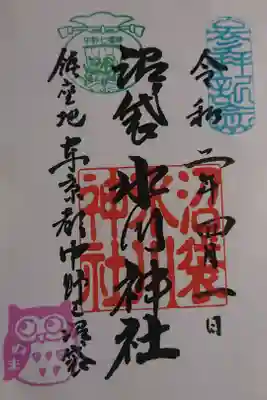 参拝祈念
令和二年四月一日
沼袋氷川神社
沼袋氷川神社
鎮座地 東京都中野区沼袋
ぬま